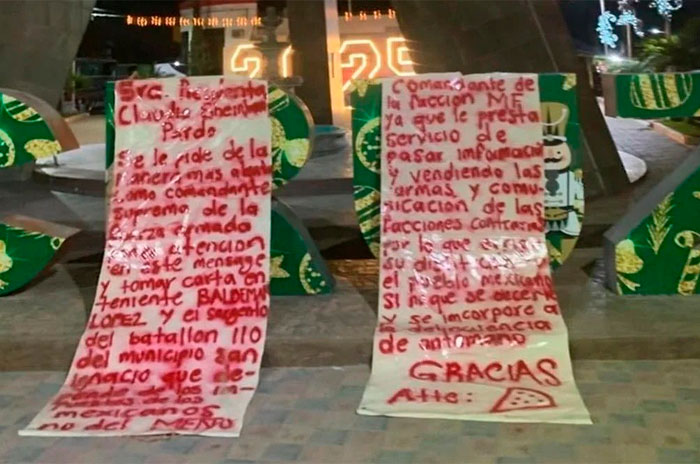 2025
Sra. Presidenta
Claudia Sheinbaum
Pardo
Se le pide de la
manera mas atenta
como comandante
suprema de la
fuerza armada
atencion
en este mensage
y tomar carta en
teniente BALDEMAR
LOPEZ y el sargento
del batallon 110
del municipio san
ignacio que de-
pende de los im-
puestos de los
mexicanos
no del MENTO
Comandante de
la faccion MF
ya que le presta
servicio de
pasar informacion
y vendiendo las
armas y comu-
nicacion de las
facciones contrarias
Por lo que
su
el pueblo mexicano
Si no que se
y se incorpore a
la delincuencia
de antemano
GRACIAS
Atte: